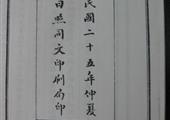 民國二十五年仲夏
日照同文印刷局印